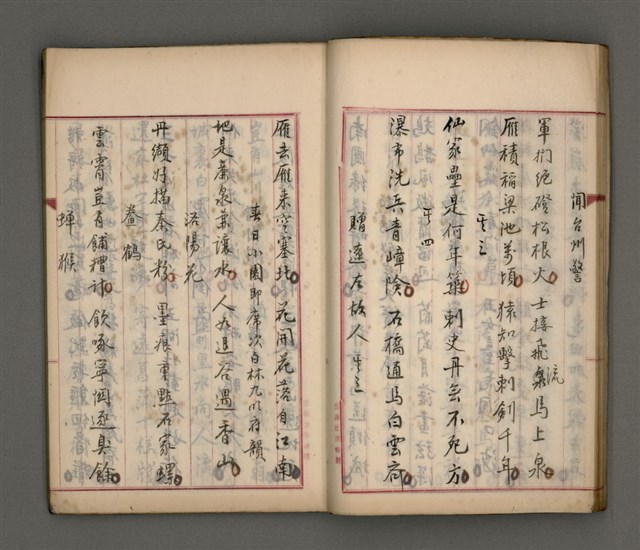 聞台州警
軍捫絕磴松根火 士接飛流馬上泉
雁積稻梁池萬頃 猿知擊刺劍千年
其三
仙家壘是何年築 刺史丹無不死方
其四
瀑布洗兵青嶂險 石橋通馬白雲齊
贈遠左故人其三
雁去雁來空塞北 花開花落自江南
春日小園即席次白林九明府韻
地是廉泉兼讓水 人為退谷遇香山
洛陽花
丹纈好描秦氏粉 墨痕重點石家螺
養鶴
雲霄豈有餔糟計 飲啄寧同逐臭餘
蟬猴